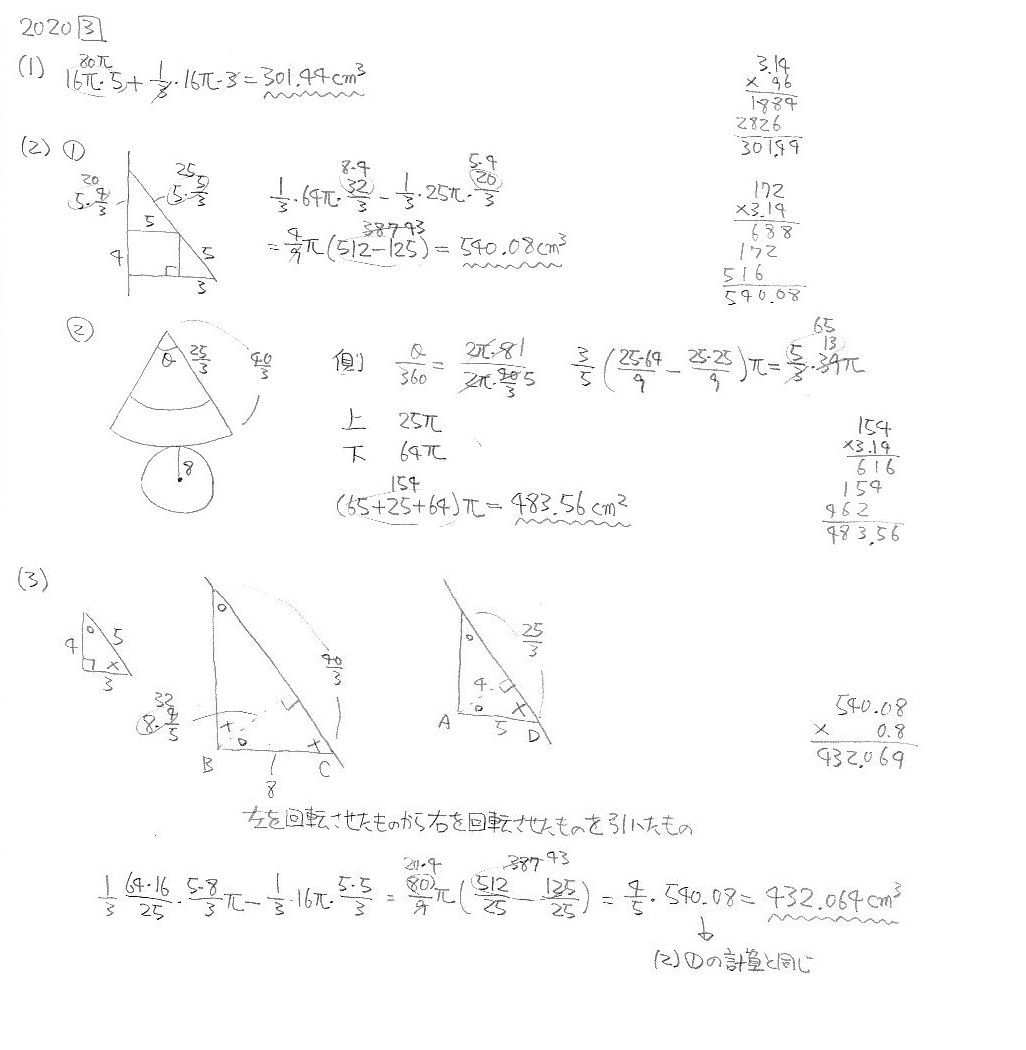 2020 3
(1) 80π
16π・5+1/3・16π・3=301.44cm³
3.14
× 96
1884
2826
301.44
(2) ①
20
5・4/3
25
5・5/3
5
4
5
3
8・4
5・4
1/3・64π・32/3－1/3・25π・20/3
387 43
=4/9π(512－125)=540.08cm³
172
×3.14
688
172
516
540.08
②
θ 25/3 40/3
8
側 θ/360=2π・81/2π・40/3 5
65
13
3/5(25・64/9－25・25/9)π=5/3・39π
上 25π
下 64π
154
(65+25+64)π=483.56cm²
154
×3.14
616
154
462
483.56
(3)
4 5
3
32
8・4/5
40/3
B C
8
25/3
4
A 5 D
540.08
× 0.8
432.064
左を回転させたものから右を回転させたものを引いたもの
20・4
387 43
1/3・64・16/25・5・8/3π－1/3・16π・5・5/3=80/9π(512/25－125/25)=4/5・540.08=432.064cm³
(2)①の計算と同じ